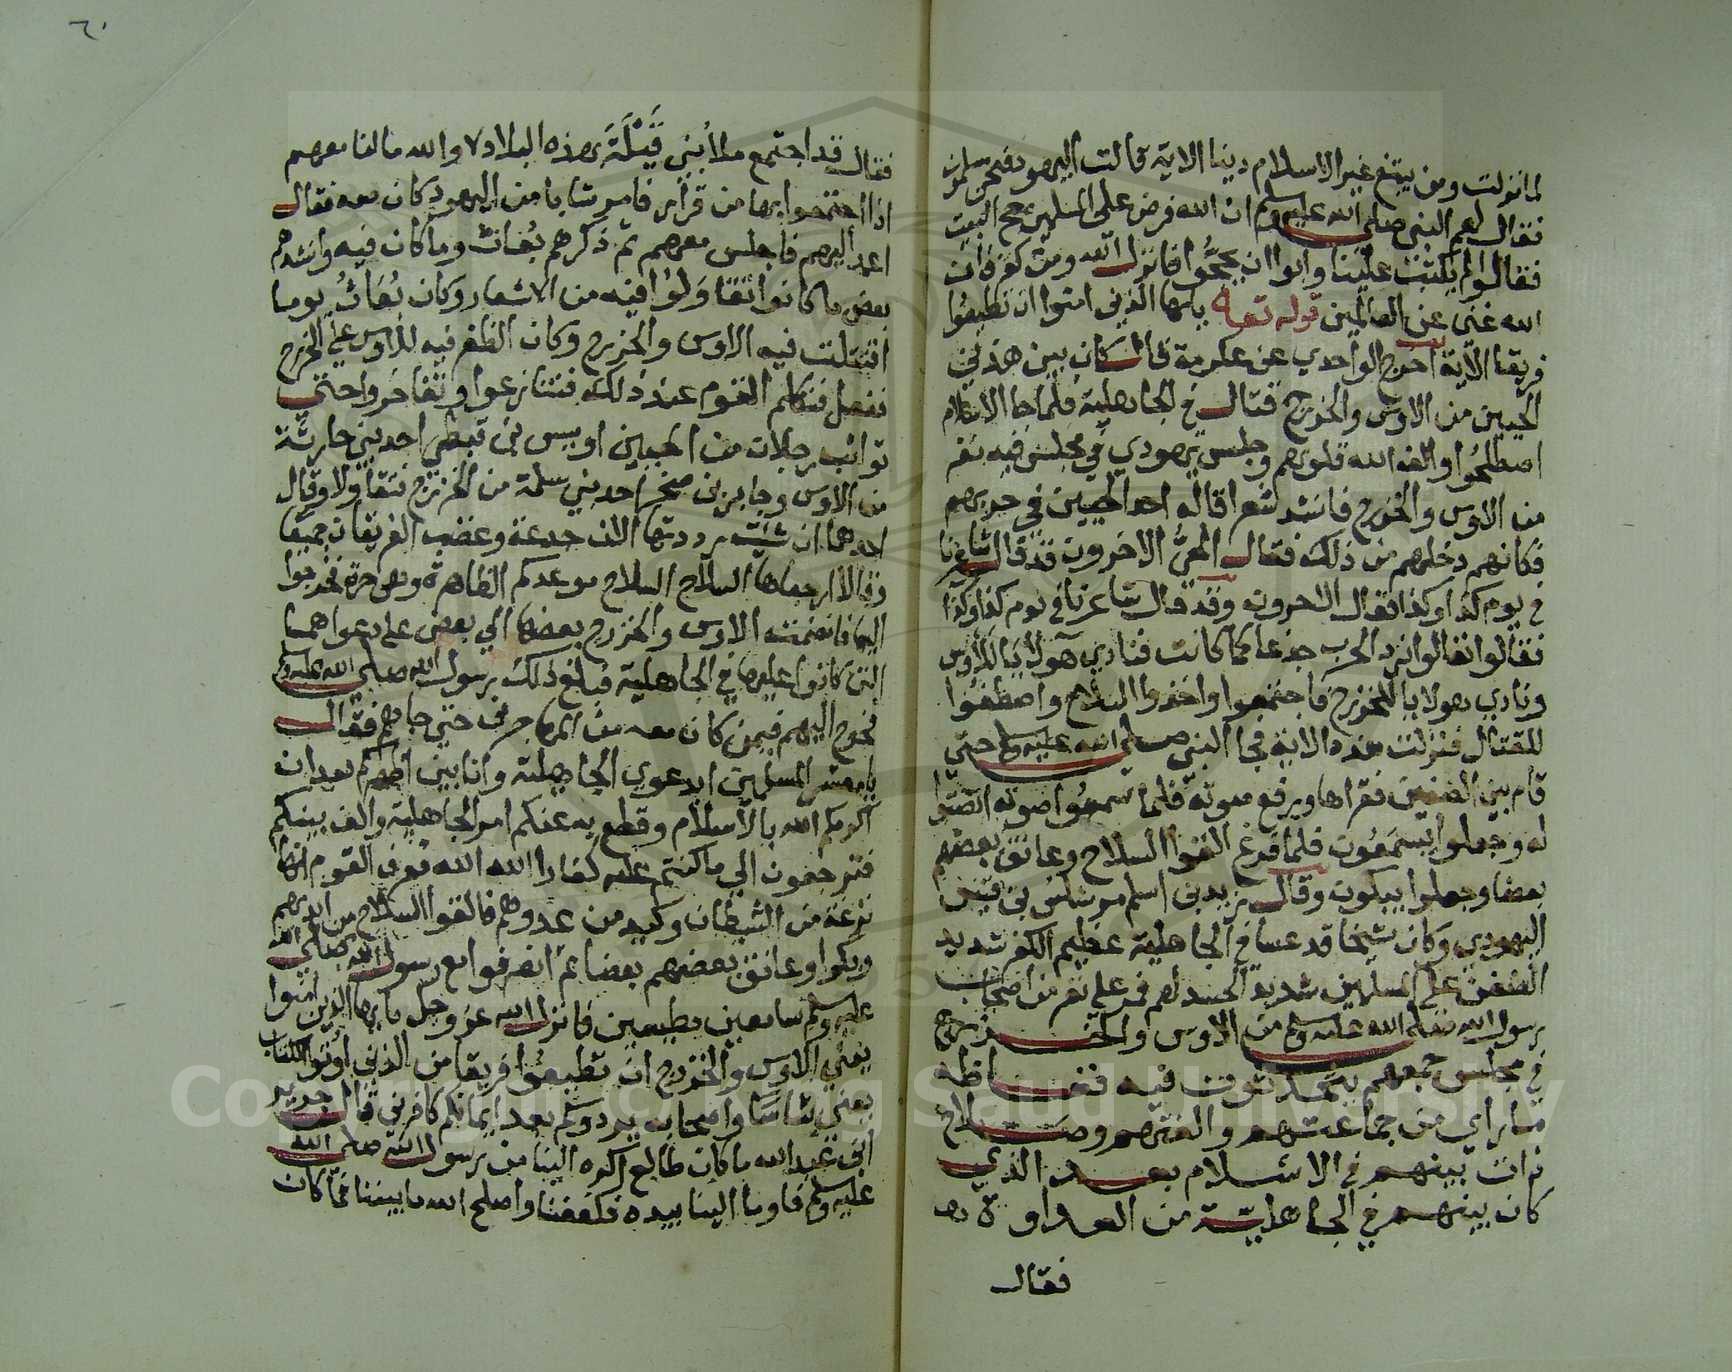 لما نزلت ومن يبتغ غير الاسلام دينا الاية قالت اليهود فنحن مسلمون
فقال لهم النبي صلى الله عليه وسلم ان الله فرض على المسلمين حج البيت
فقالوا لم يكتب علينا وابوا ان يحجوا فانزل الله ومن كفر فان
الله غني عن العالمين قوله تعالى يايها الذين امنوا ان تطيعوا
فريقا الآية اخرج الواحدي عن عكرمة قال كان بين هذين
الحيين من الاوس والخزرج قتال في الجاهلية فلما جا الاسلام
اصطلحوا والف الله قلوبهم وجلس يهودي في مجلس فيه نفر
من الاوس والخزرج فانشد شعرا قاله احد الحيين في حربهم
فكانهم دخلهم من ذلك فقال الحي الاخرون قد قال شاعرنا
في يوم كذا وكذا فقال الاخرون وقد قال شاعرنا في يوم كذا وكذا
فقالوا تعالوا نرد الحرب جذعا كما كانت فنادي هولا يا للاوس
ونادي هولا يا للخزرج فاجتمعوا واخذوا السلاح واصطفوا
للقتال فنزلت هذه الاية فجا النبي صلى الله عليه وسلم حتي
قام بين الصفين فقراها ورفع صوته فلما سمعوا صوته انصتوا
له وجعلوا يستمعون فلما فرغ القوا السلاح وعانق بعضهم
بعضا وجعلوا يبكون وقال زيد بن اسلم مر شاس بن قيس
اليهودي وكان شيخا قد عسا في الجاهلية عظيم الكفر شديد
الضغن على المسلمين شديد الحسد لهم فمر على نفر من اصحاب
رسول الله صلى الله عليه وسلم من الاوس والخزرج
في مجلس جمعهم يتحدثون فيه فغاظه
ما راي من جماعتهم والفتهم وصلاح
ذات بينهم في الاسلام بعد الذي
كان بينهم في الجاهلية من العداوة
فقال
٦٠
فقال قد اجتمع ملأ بني قَيْلَةَ بهذه البلاد لا والله مالنا معهم
اذا اجتمعوا بها من قرار فامر شابا من اليهود كان معه فقال
اعمد اليهم فاجلس معهم ثم ذكرهم بُعاث وما كان فيه وانشدهم
بعض ما كانوا تقاولوا فيه من الاشعار وكان بُعاثُ يوما
اقتتلت فيه الاوس والخزرج وكان الظفر فيه للاوس علي الخزرج
ففعل فتكلم القوم عند ذلك فتنازعوا وتفاخروا حتي
تواثب رجلان من الحيين اوس بن قيظي احد بني حارثة
من الاوس وجابر بن صخر احد بني سلمة من الخزرج فتقاولا وقال
احدهما ان شئت رددتها الان جذعة وغضب الفريقان جميعا
وقالا ارجعاها السلاح السلاح موعدكم الظاهرة وهي حرة فخرجوا
اليها فانضمت الاوس والخزرج بعضها الي بعض على دعواهما
التي كانوا عليها في الجاهلية فبلغ ذلك رسول الله صلى الله عليه وسلم
فخرج اليهم فيمن كان معه من المهاجرين حتي جاهم فقال
يا معشر المسلمين ابدعوي الجاهلية وانا بين اظهركم بعد ان
اكرمكم الله بالاسلام وقطع به عنكم امر الجاهلية والف بينكم
فترجعون الي ما كنتم عليه كفارا الله الله فعرف القوم انها
نزغة من الشيطان وكيد من عدوهم فالقوا السلاح من ايديهم
وبكوا وعانق بعضهم بعضا ثم انصرفوا مع رسول الله صلى الله
عليه وسلم سامعين مطيعين فانزل الله عز وجل يا يها الذين امنوا
يعني الاوس والخزرج ان تطيعوا فريقا من الذين اوتوا الكتاب
يعني شاسا واصحابه يردوكم بعد ايمانكم كافرين قال جابر
ابن عبد الله ما كان طالع اكره الينا من رسول الله صلى الله
عليه وسلم فاوما الينا بيده فكففنا واصلح الله ما بيننا فما كان